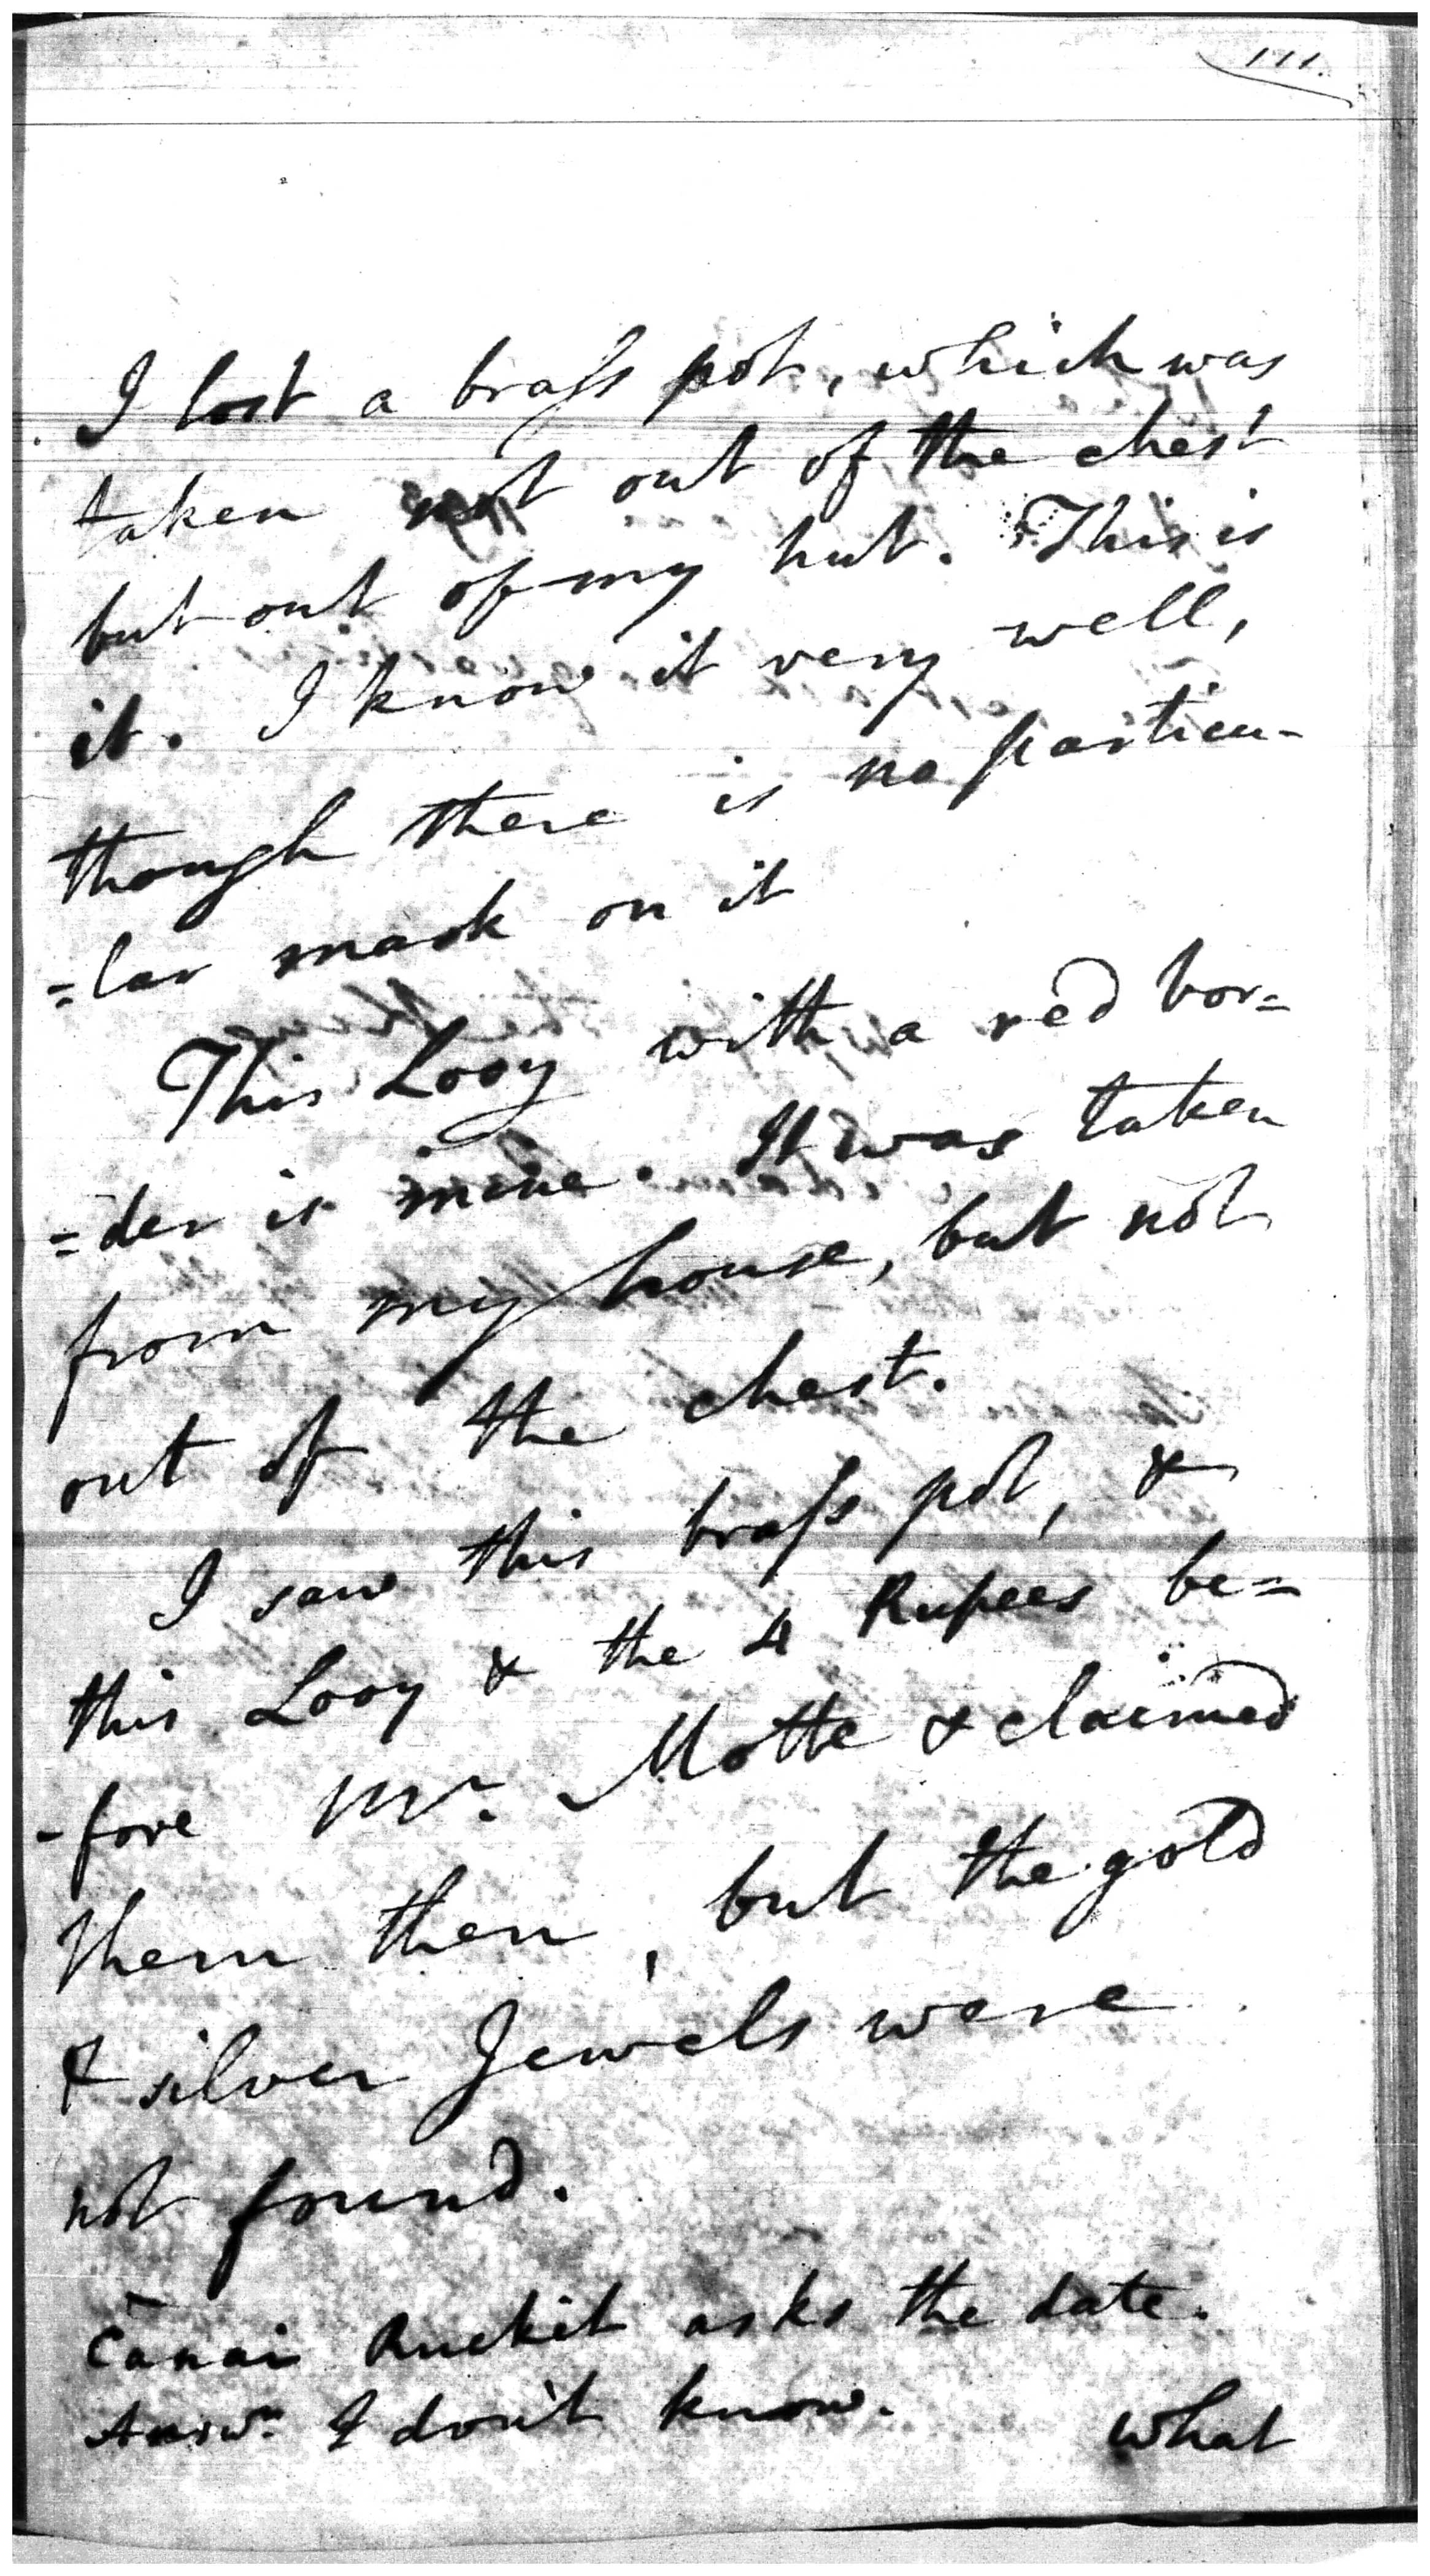 111.
I lost a brass pot, which was
taken not out of the chest
but out of my hut. This is
it. I know it very well,
though there is no particu-
=lar mark on it
This Looy with a red bor=
=der is mine. It was taken
from my house, but not
out of the chest.
I saw this brass pot, &
this Looy & the 4 Rupees be=
-fore Mr. Motte & claimed
them then, but the gold
& silver Jewels were
not found.
Canai Ruckit asks the date.
Answr. I don't know.
what